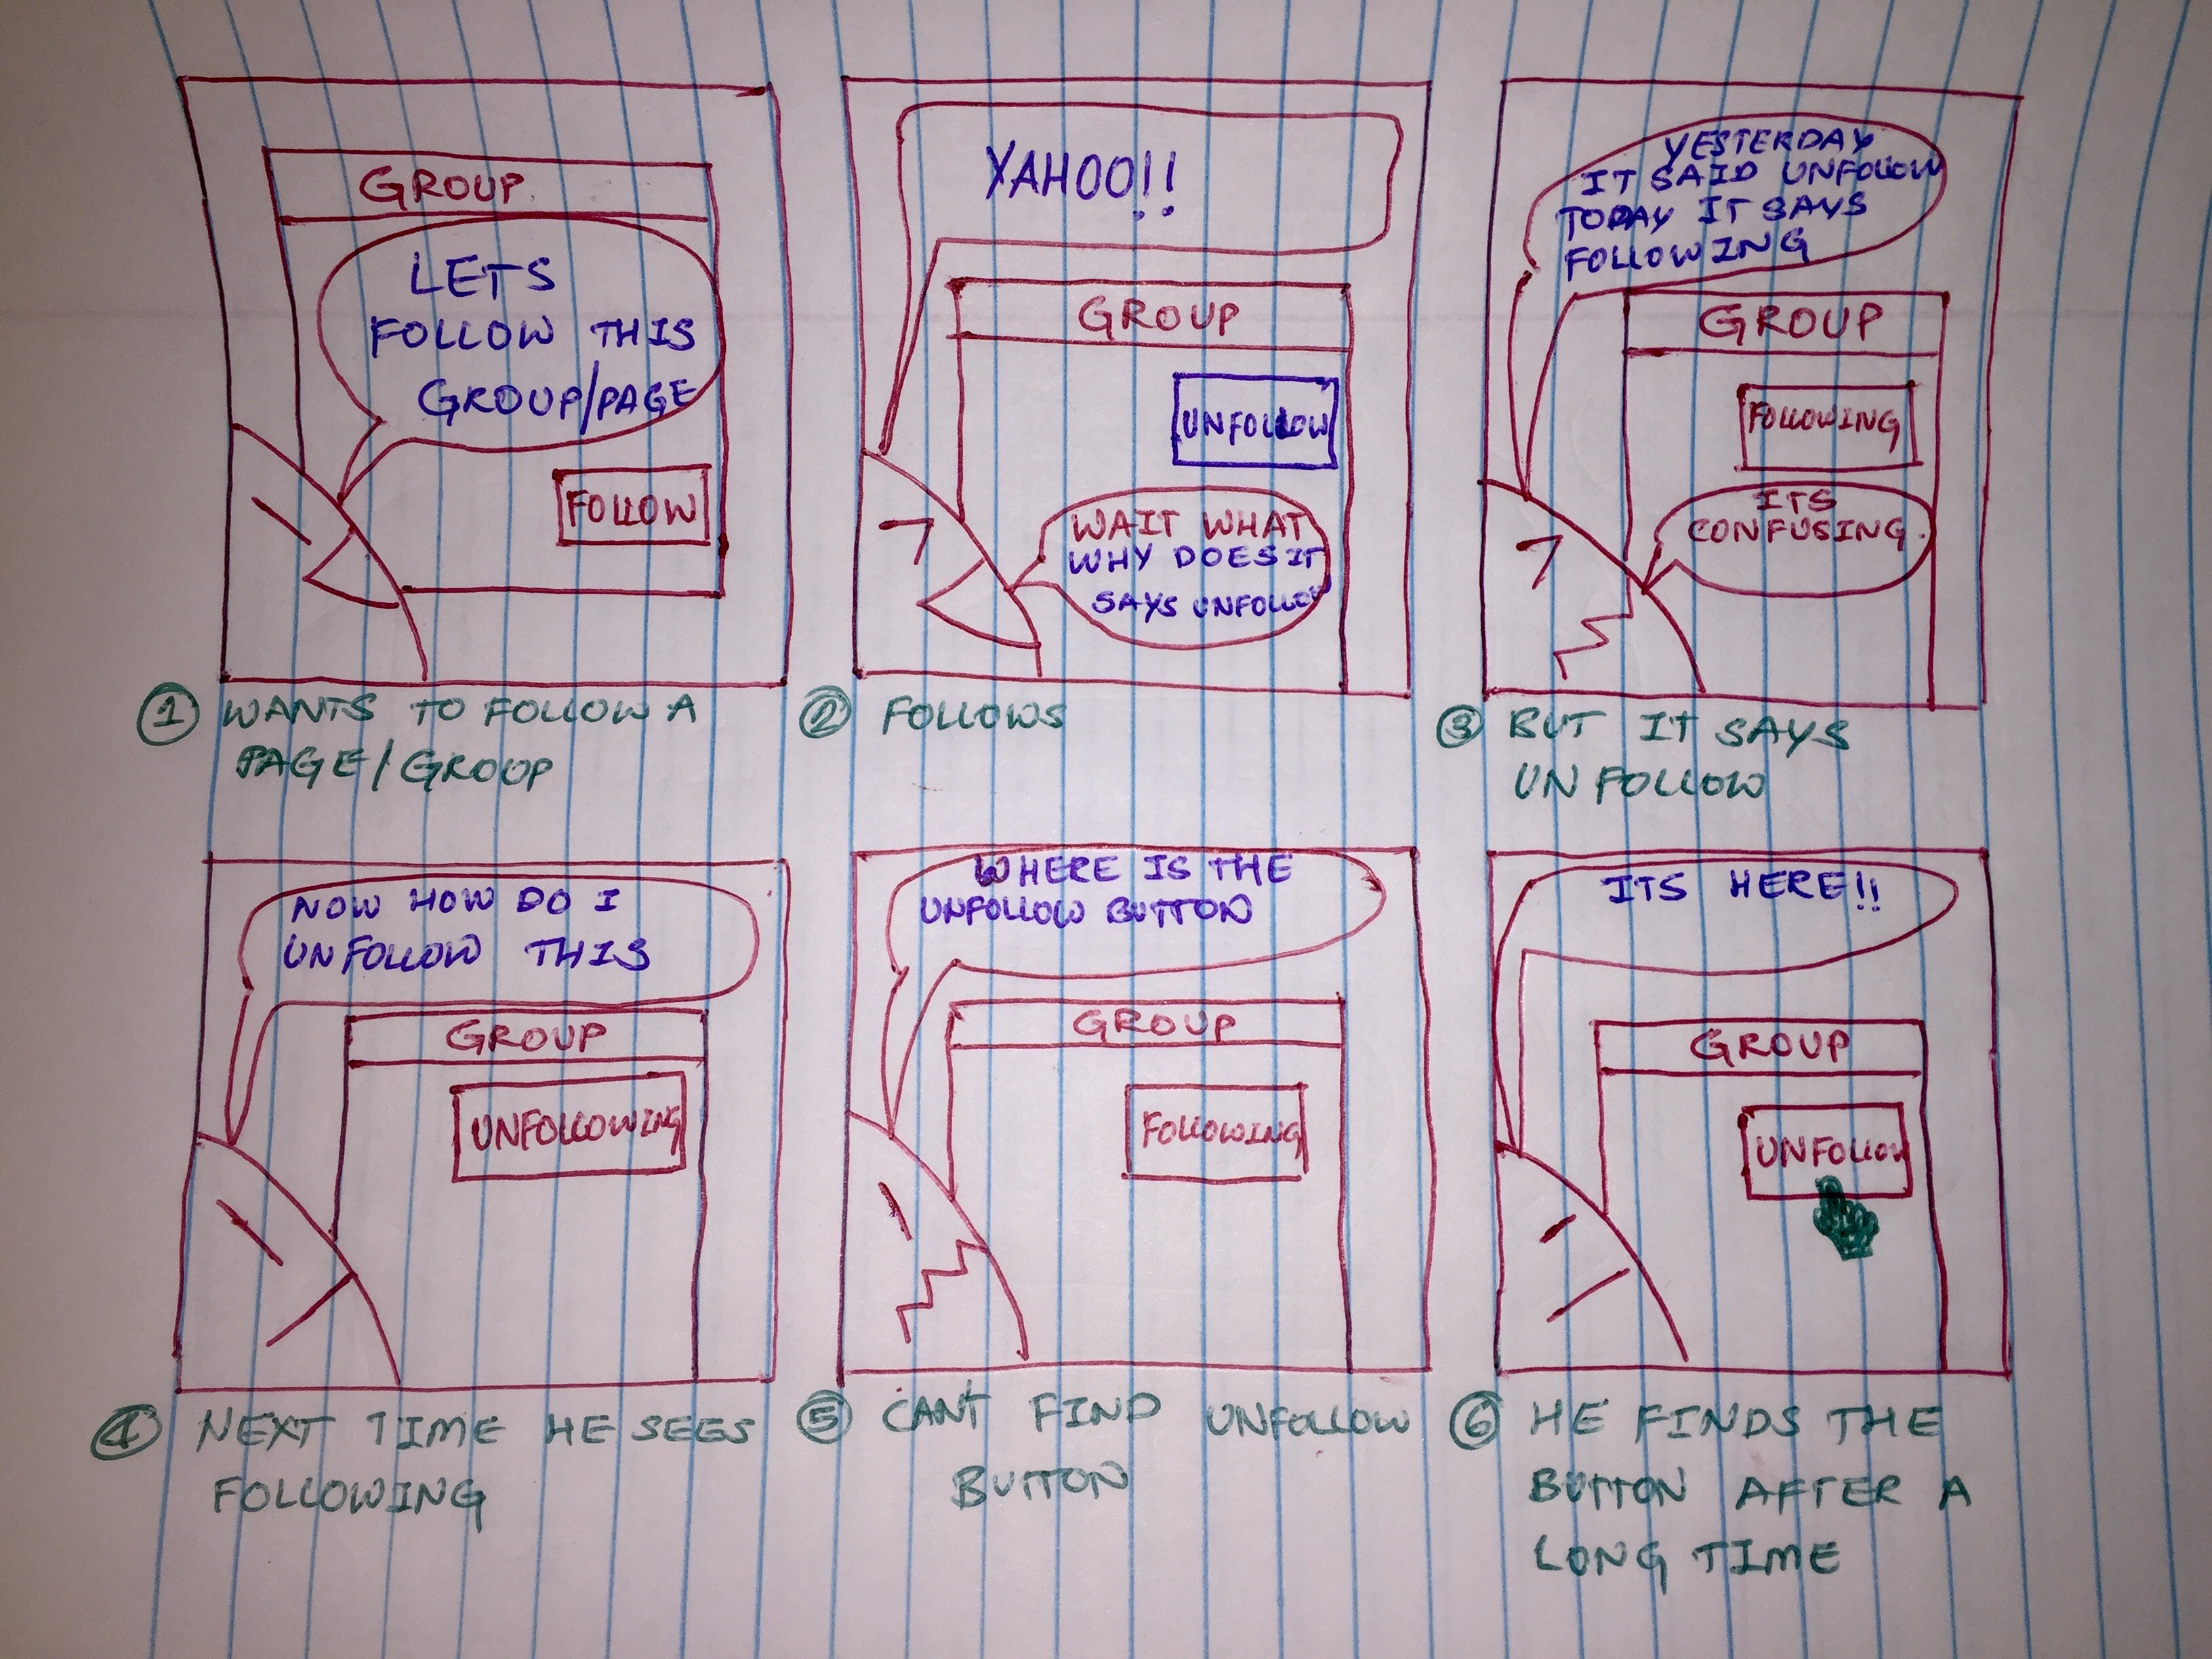 GROUP
LETS
FOLLOW THIS
GROUP/PAGE
FOLLOW
① WANTS TO FOLLOW A
PAGE/GROUP
YAHOO!!
GROUP
UNFOLLOW
WAIT WHAT
WHY DOES IT
SAYS UNFOLLOW
② FOLLOWS
YESTERDAY
IT SAID UNFOLLOW
TODAY IT SAYS
FOLLOWING
GROUP
FOLLOWING
ITS
CONFUSING.
③ BUT IT SAYS
UNFOLLOW
NOW HOW DO I
UNFOLLOW THIS
GROUP
UNFOLLOWING
④ NEXT TIME HE SEES
FOLLOWING
WHERE IS THE
UNFOLLOW BUTTON
GROUP
FOLLOWING
⑤ CAN'T FIND UNFOLLOW
BUTTON
ITS HERE!!
GROUP
UNFOLLOW
⑥ HE FINDS THE
BUTTON AFTER A
LONG TIME